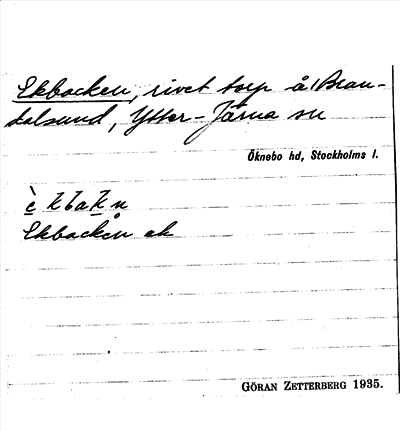 Ekbacken, rivet torp å Bran-
dalsund, Ytter-Järna sn
Öknebo hd, Stockholms l.
È k b a k n
Ekbacken ek
GÖRAN ZETTERBERG 1935.